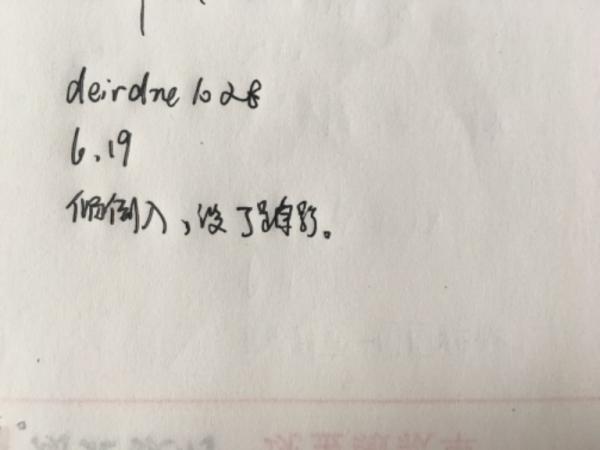 deirdre 1028
6.19
倾倒入,没了踪影。